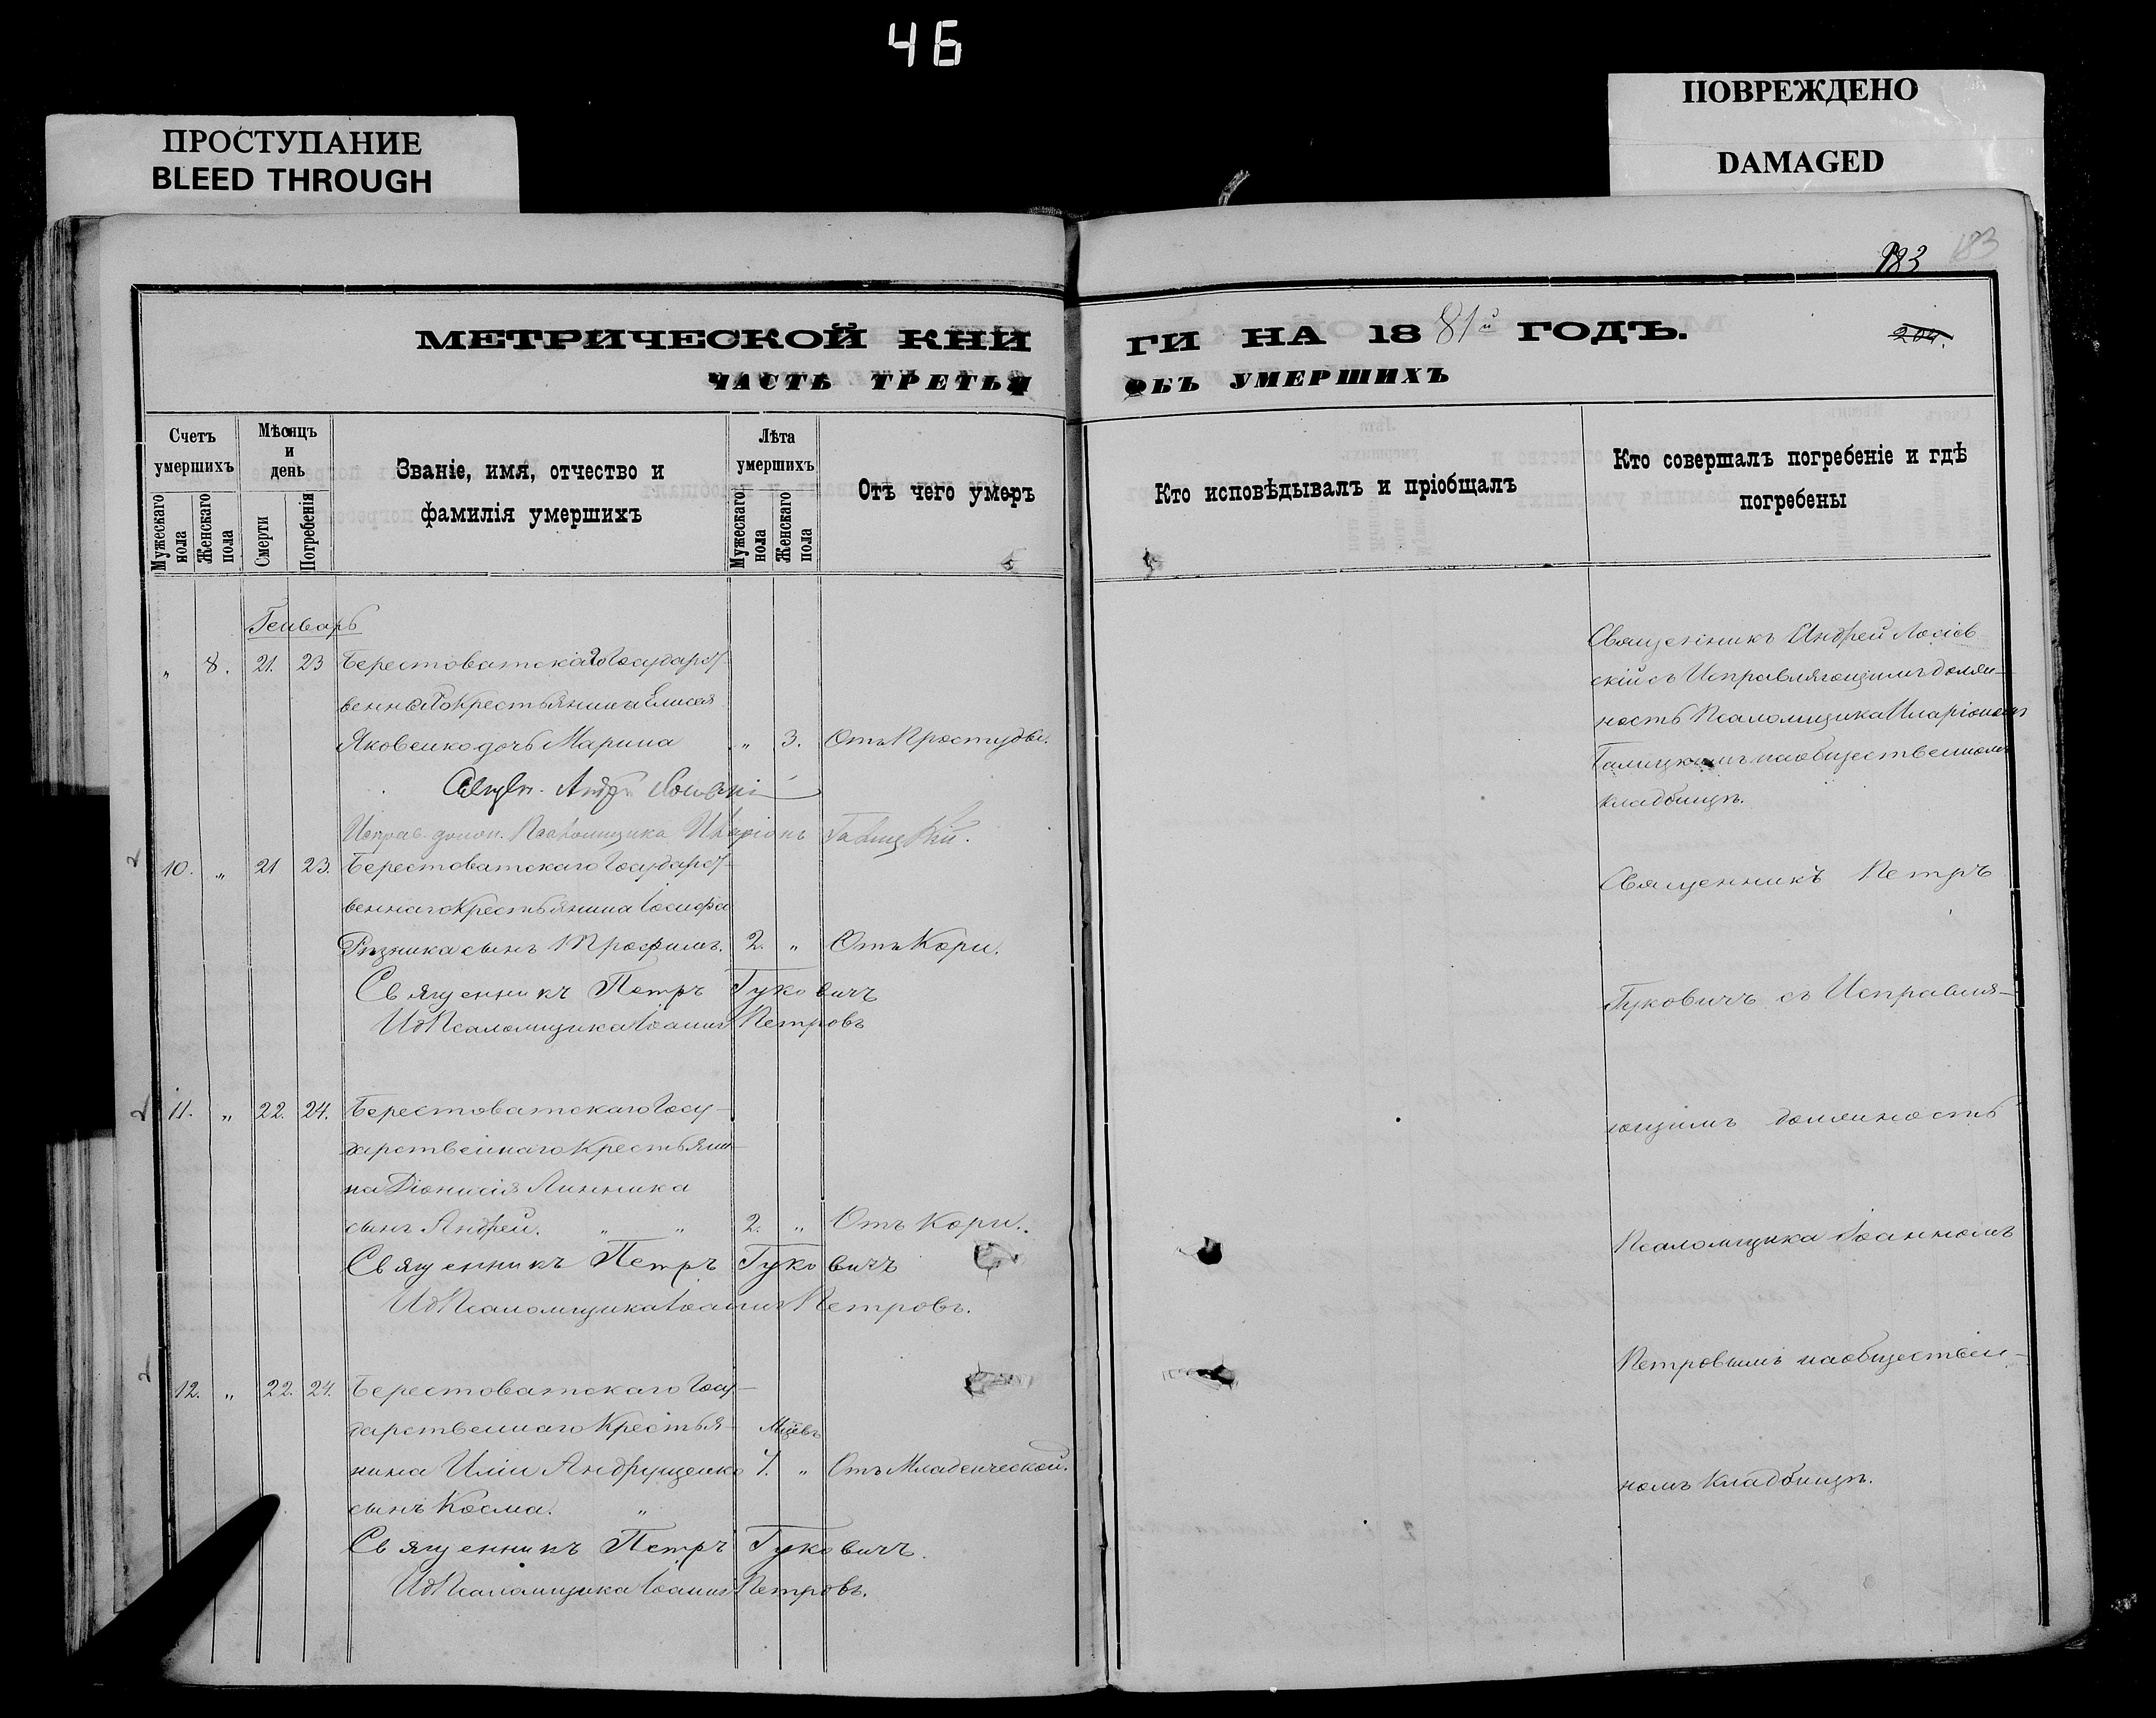 46
ПРОСТУПАНИЕ
BLEED THROUGH
ПОВРЕЖДЕНО
DAMAGED
183
183
МЕТРИЧЕСКОЙ КНИ
ГИ НА 1881й ГОДЪ.
204.
ЧАСТЬ ТРЕТЬЯ
ОБЪ УМЕРШИХЪ
Счетъ умершихъ
Мужескаго пола
Женскаго пола
Мѣсяцъ и день
Смерти
Погребенія
Званіе, имя, отчество и фамилія умершихъ
Лѣта умершихъ
Мужескаго пола
Женскаго пола
Отъ чего умеръ
Кто исповѣдывалъ и пріобщалъ
Кто совершалъ погребеніе и гдѣ погребены
Генварь
„ 8. 21. 23 Берестоватскаго Государст-
веннаго Крестьянина Елисея
Яковенко дочь Марина „ 3. Отъ Простуды.
Андр.
Исправ. долж. Псаломщика Иларіонъ Галицкій.
Священникъ Андрей
скій съ Исправляющимъ долж-
ность Псаломщика Иларіономъ
Галицкимъ на общественномъ
кладбищѣ.
10. „ 21 23. Берестоватскаго Государст-
веннаго Крестьянина Іосифа
Рѣзника сынъ Трофимъ. 2. „ Отъ Кори.
Священникъ Петръ Гуковичъ
ИдПсаломщика Іоаннъ Петровъ
11. „ 22. 24. Берестоватскаго Госу-
дарственнаго Крестьяни-
на Діонисія Линника
сынъ Андрей. „ „ 2. „ Отъ Кори.
Священникъ Петръ Гуковичъ
ИдПсаломщика Іоаннъ Петровъ.
12. „ 22. 24. Берестоватскаго Госу-
дарственнаго Крестья- Мцевъ
нина Иліи Андрущенко „ Отъ Младенческой.
сынъ Косма. „
Священникъ Петръ Гуковичъ.
ИдПсаломщика Іоаннъ Петровъ.
Священникъ Петръ
Гуковичъ съ Исправля-
ющимъ должность
Псаломщика Іоанномъ
Петровымъ на обществен-
номъ Кладбищѣ.